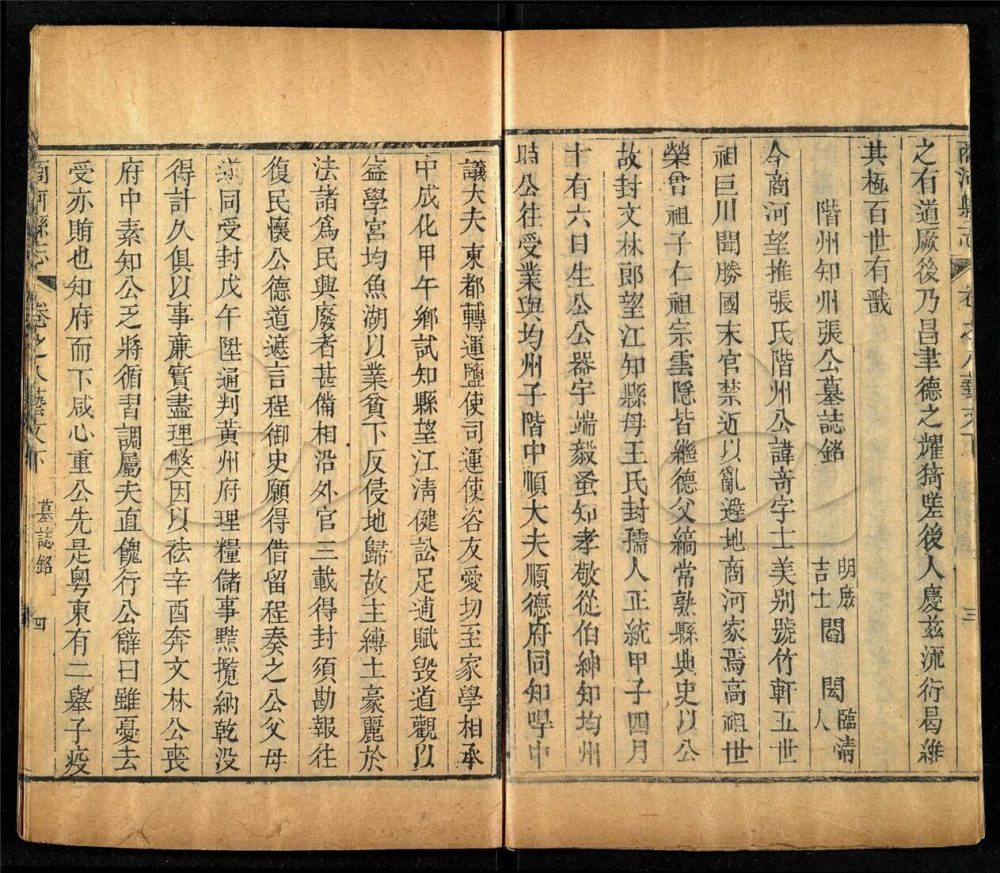 商河縣志 卷之八藝文下 三
之有道厥後乃昌聿德之燿猗嗟後人慶兹流衍曷維
其極百世有戩
階州知州張公墓誌銘 明庶吉士 閻閎 臨清人
今商河望推張氏階州公諱奇字士美别號竹軒五世
祖巨川聞勝國末官禁近以亂避地商河家焉高祖世
榮曾祖子仁祖宗雲隱皆繼德父縞常熟縣典史以公
故封文林郎望江知縣母王氏封孺人正統甲子四月
十有六日生公公器宇端毅蚤知孝敬從伯紳知均州
時公往受業與均州子階中順大夫順德府同知㽦中
議大夫東都轉運鹽使司運使咨友愛切至家學相承
中成化甲午鄉試知縣望江清健訟足逋賦毁道觀以
益學宮均魚湖以業貧下反侵地歸故主縛土豪麗於
法諸爲民興廢者甚備相沿外官三載得封須勘報往
復民懷公德道遮言程御史願得借留程奏之公父母
遂同受封戊午陞通判黄州府理糧儲事黠攬納乾没
得計久俱以事亷實盡理獘因以祛辛酉奔文林公喪
府中素知公乏將循習調屬夫直餽行公辭曰雖憂去
受亦賄也知府而下咸心重公先是粤東有二舉子疫
商河縣志 卷之八藝文下 墓誌銘 四